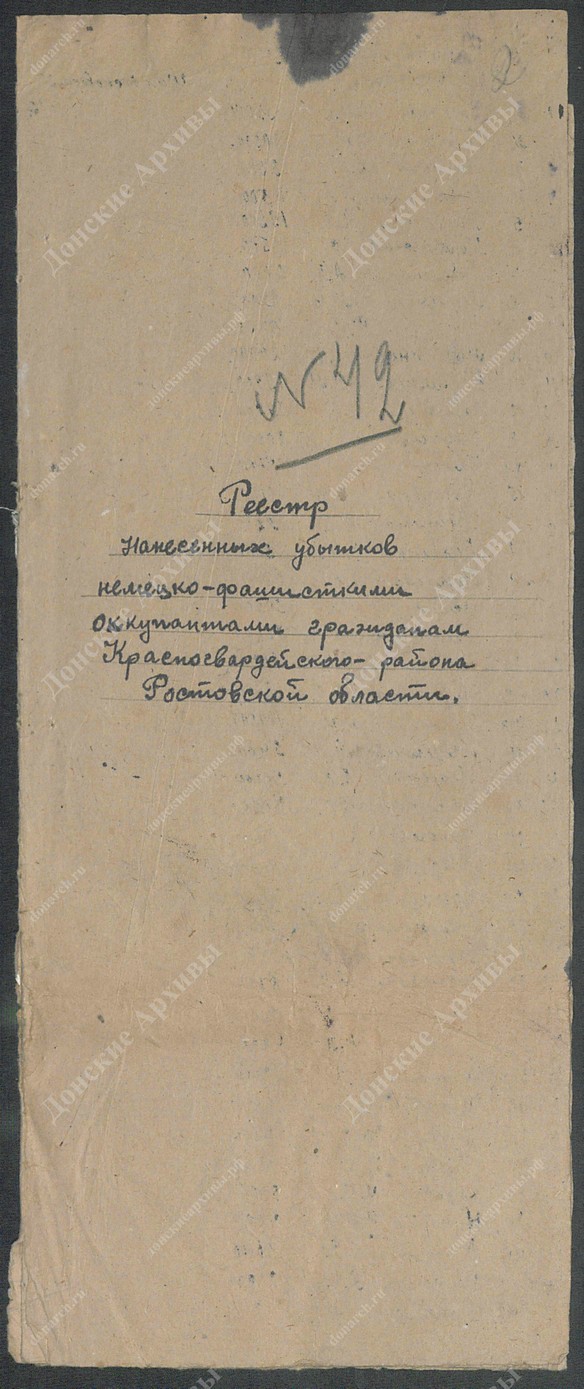 2
N 42
Реестр
Нанесенных убытков
немецко-фашисткими
оккупантами гражданам
Красногвардейского- района
Ростовской области.
Донские Архивы
donarch.ru
донскиеархивы.рф